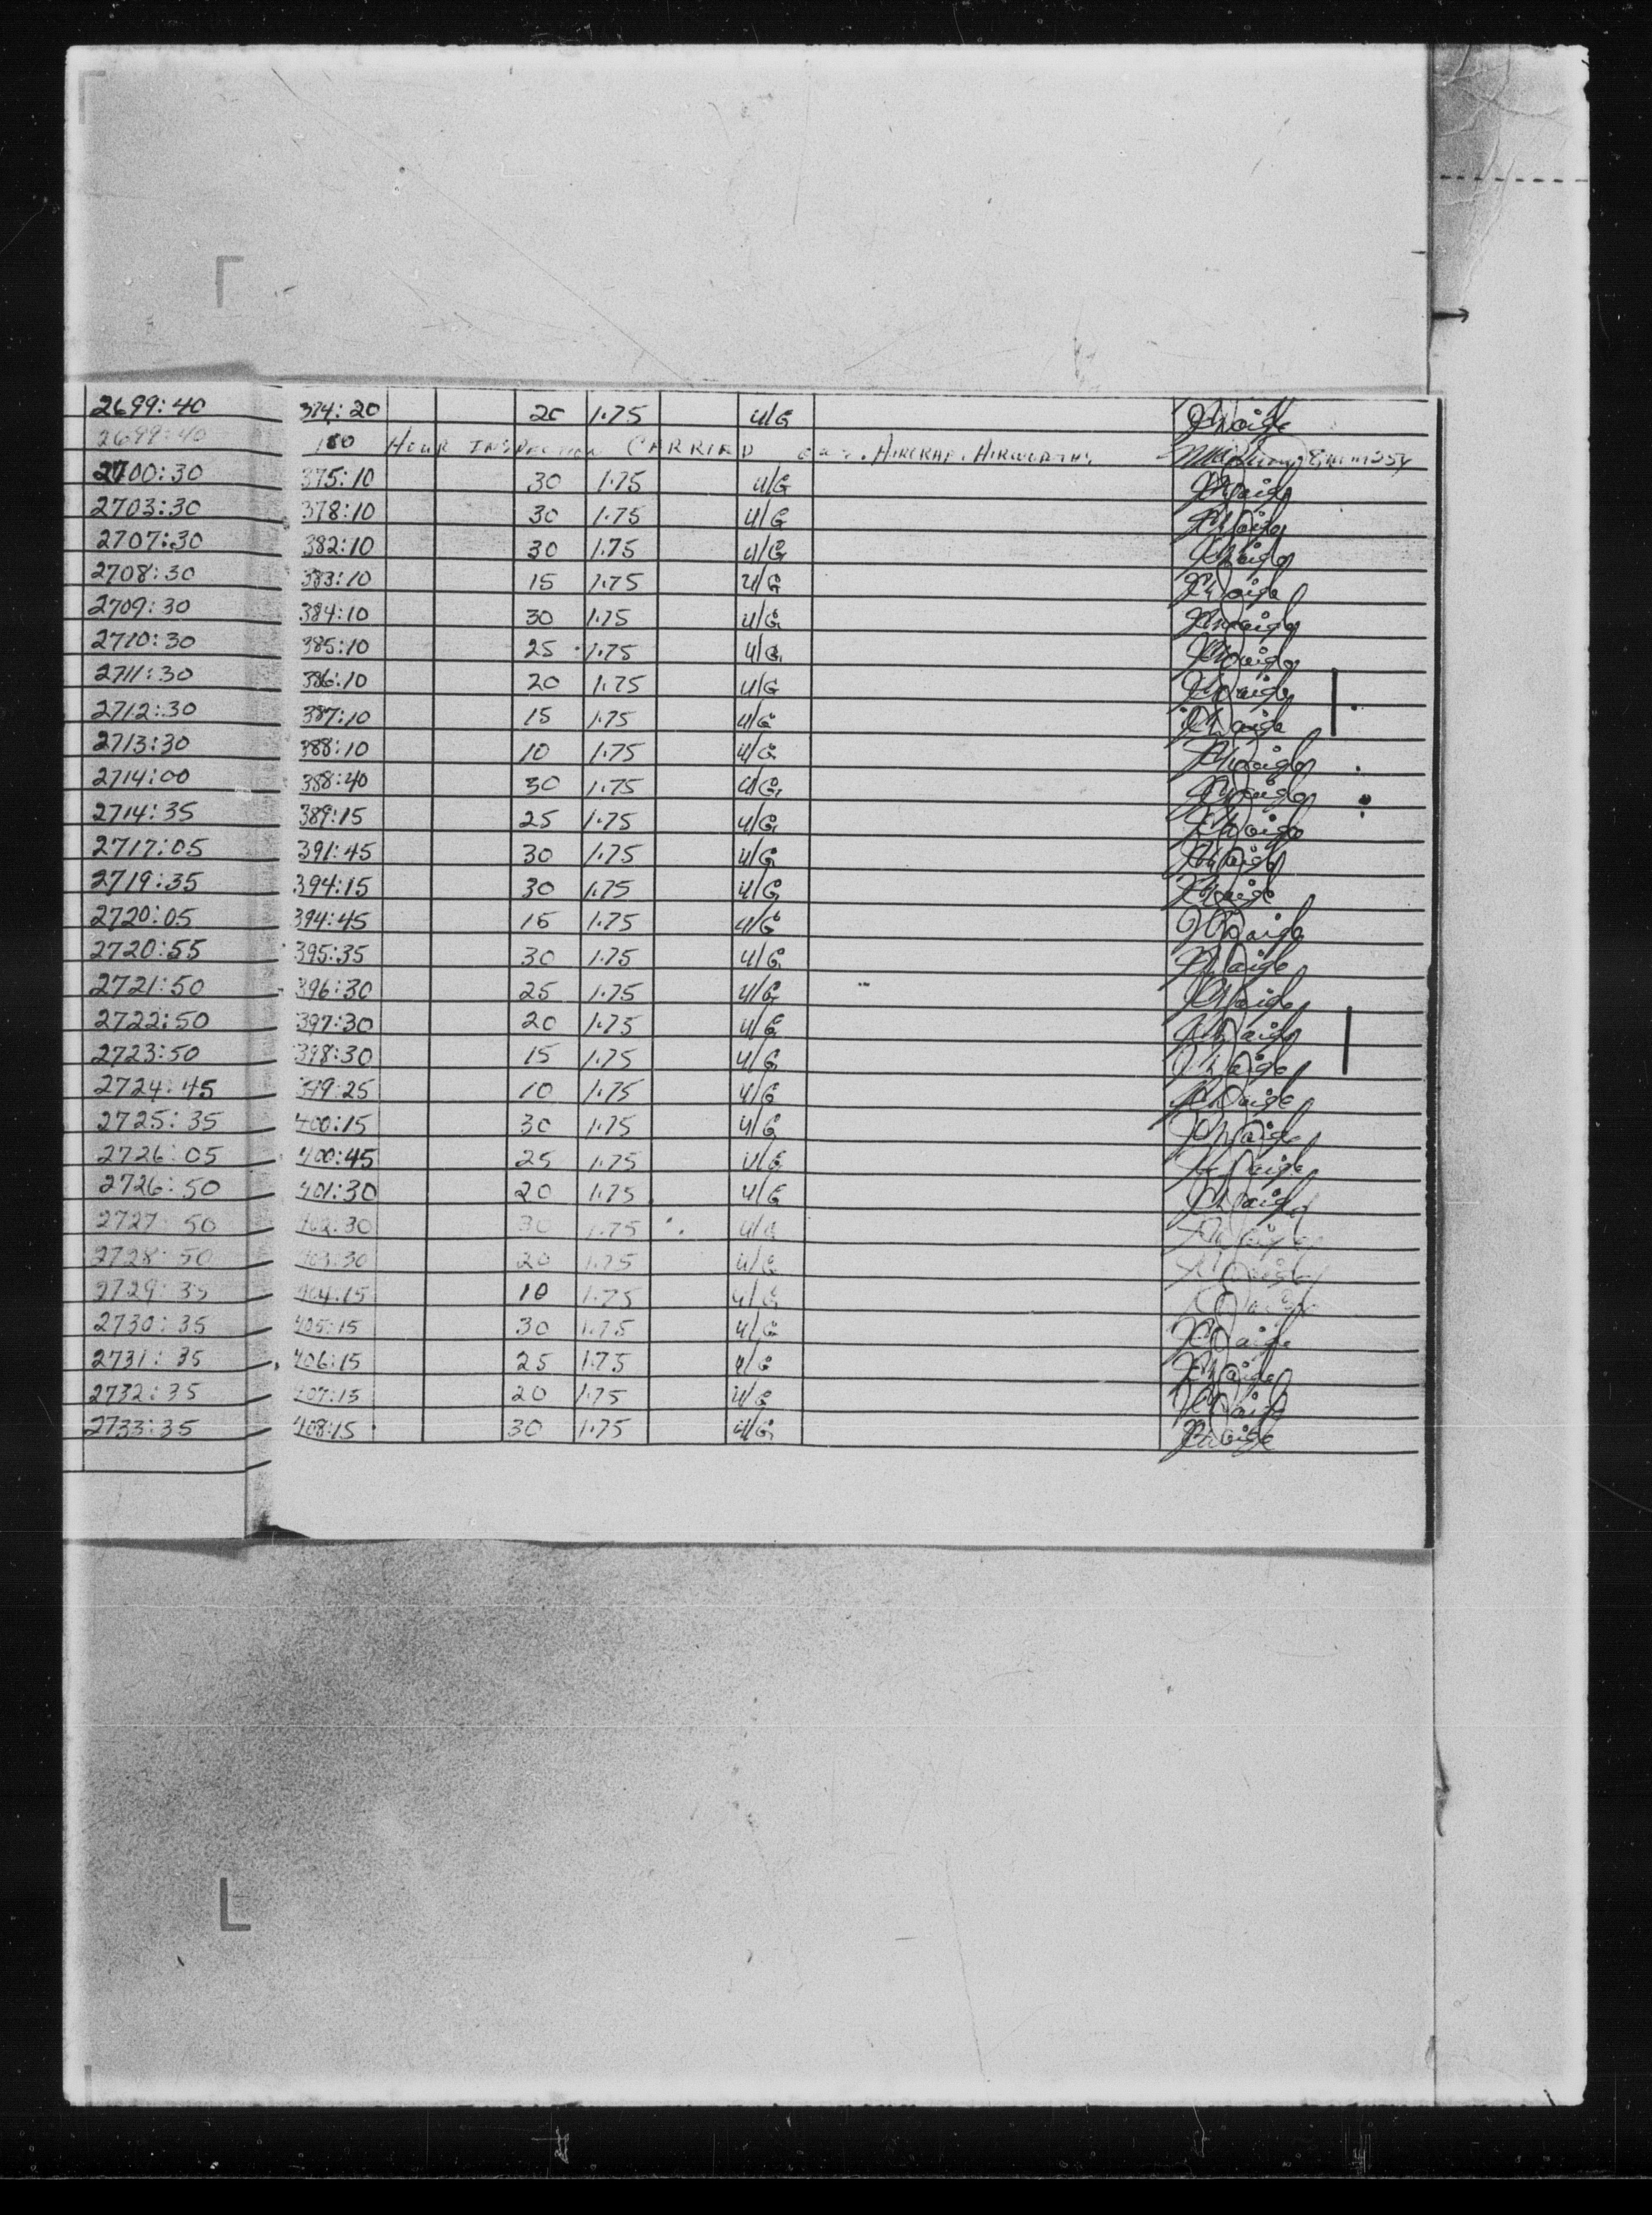 2699:40 374:20 20 1.75 U/G
2699:40 100 HOUR INSPECTION CARRIED OUT. AIRCRAFT AIRWORTHY
2700:30 375:10 30 1.75 U/G
2703:30 378:10 30 1.75 U/G
2707:30 382:10 30 1.75 U/G
2708:30 383:10 15 1.75 U/G
2709:30 384:10 30 1.75 U/G
2710:30 385:10 25 1.75 U/G
2711:30 386:10 20 1.75 U/G
2712:30 387:10 15 1.75 U/G
2713:30 388:10 10 1.75 U/G
2714:00 388:40 30 1.75 U/G
2714:35 389:15 25 1.75 U/G
2717:05 391:45 30 1.75 U/G
2719:35 394:15 30 1.75 U/G
2720:05 394:45 15 1.75 U/G
2720:55 395:35 30 1.75 U/G
2721:50 396:30 25 1.75 U/G
2722:50 397:30 20 1.75 U/G
2723:50 398:30 15 1.75 U/G
2724:45 399:25 10 1.75 U/G
2725:35 400:15 30 1.75 U/G
2726:05 400:45 25 1.75 U/G
2726:50 401:30 20 1.75 U/G
2727:50 402:30 30 1.75 U/G
2728:50 403:30 20 1.75 U/G
2729:35 404:15 10 1.75 U/G
2730:35 405:15 30 1.75 U/G
2731:35 406:15 25 1.75 U/G
2732:35 407:15 20 1.75 U/G
2733:35 408:15 30 1.75 U/G